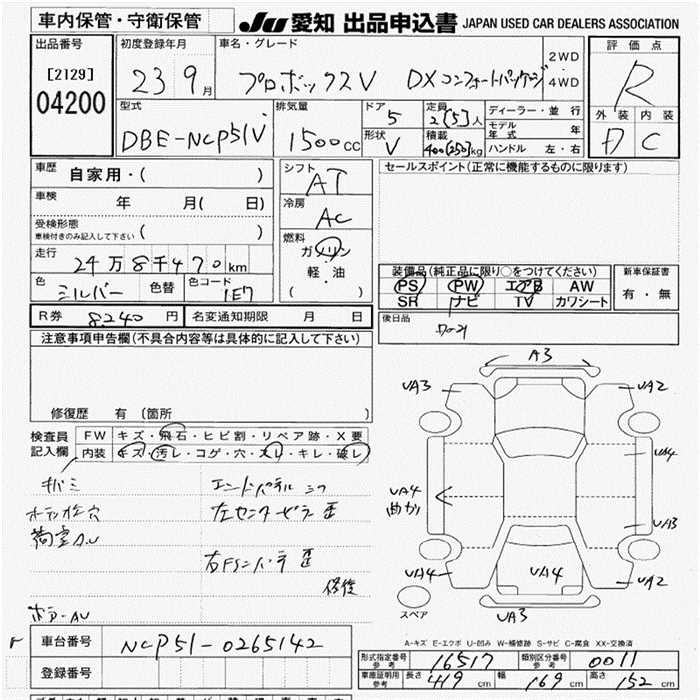 車内保管・守衛保管
JU 愛知 出品申込書 JAPAN USED CAR DEALERS ASSOCIATION
出品番号
[2129]
04200
初度登録年月
23 9月
車名・グレード
プロボックスV DXコンフォートパッケージ
2WD
4WD
評価点
R
外装 内装
D C
型式
DBE-NCP51V
排気量
1500cc
ドア
5
形状
V
定員
2[5]人
積載
400[250]kg
ディーラー・並行
モデル年式 年
ハンドル 左・右
車歴
自家用・( )
車検
年 月( 日)
受検形態
車検付きのみ記入して下さい ( )
走行
24万8千470km
色
シルバー
色替
色コード
1E7
シフト
AT
冷房
AC
燃料
ガソリン
軽・油
( )
セールスポイント(正常に機能するものに限ります)
装備品(純正品に限り○をつけてください)
PS PW エアB AW
SR ナビ TV カワシート
新車保証書
有・無
R券 8,240円
名変通知期限 月 日
後日品
注意事項申告欄(不具合内容等は具体的に記入して下さい)
修復歴 有 (箇所 )
検査員記入欄
FW キズ・飛石・ヒビ割・リペア跡・X要
内装 キズ・汚レ・コゲ・穴・スレ・キレ・破レ
エンドパネル
荷室AU
歪
修復
A3
UA3
UA2
UA4
UA4
UA3
UA4
UA4
UA2
UA3
スペア
A-キズ E-エクボ U-凹み W-補修跡 S-サビ C-腐食 XX-交換済
車台番号 NCP51-0265142
登録番号
形式指定番号 参考 16517
類別区分番号 参考 0011
車庫証明用 参考 長さ 419cm 幅 169cm 高さ 152cm